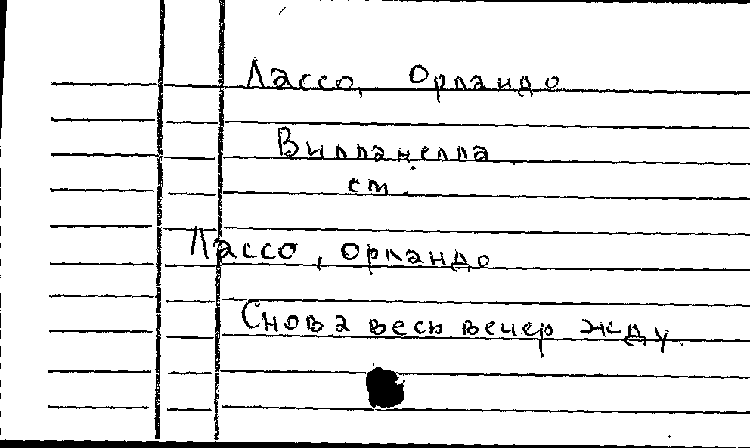 Лассо, Орландо
Вилланелла
см.
Лассо, Орландо
Снова весь вечер жду.